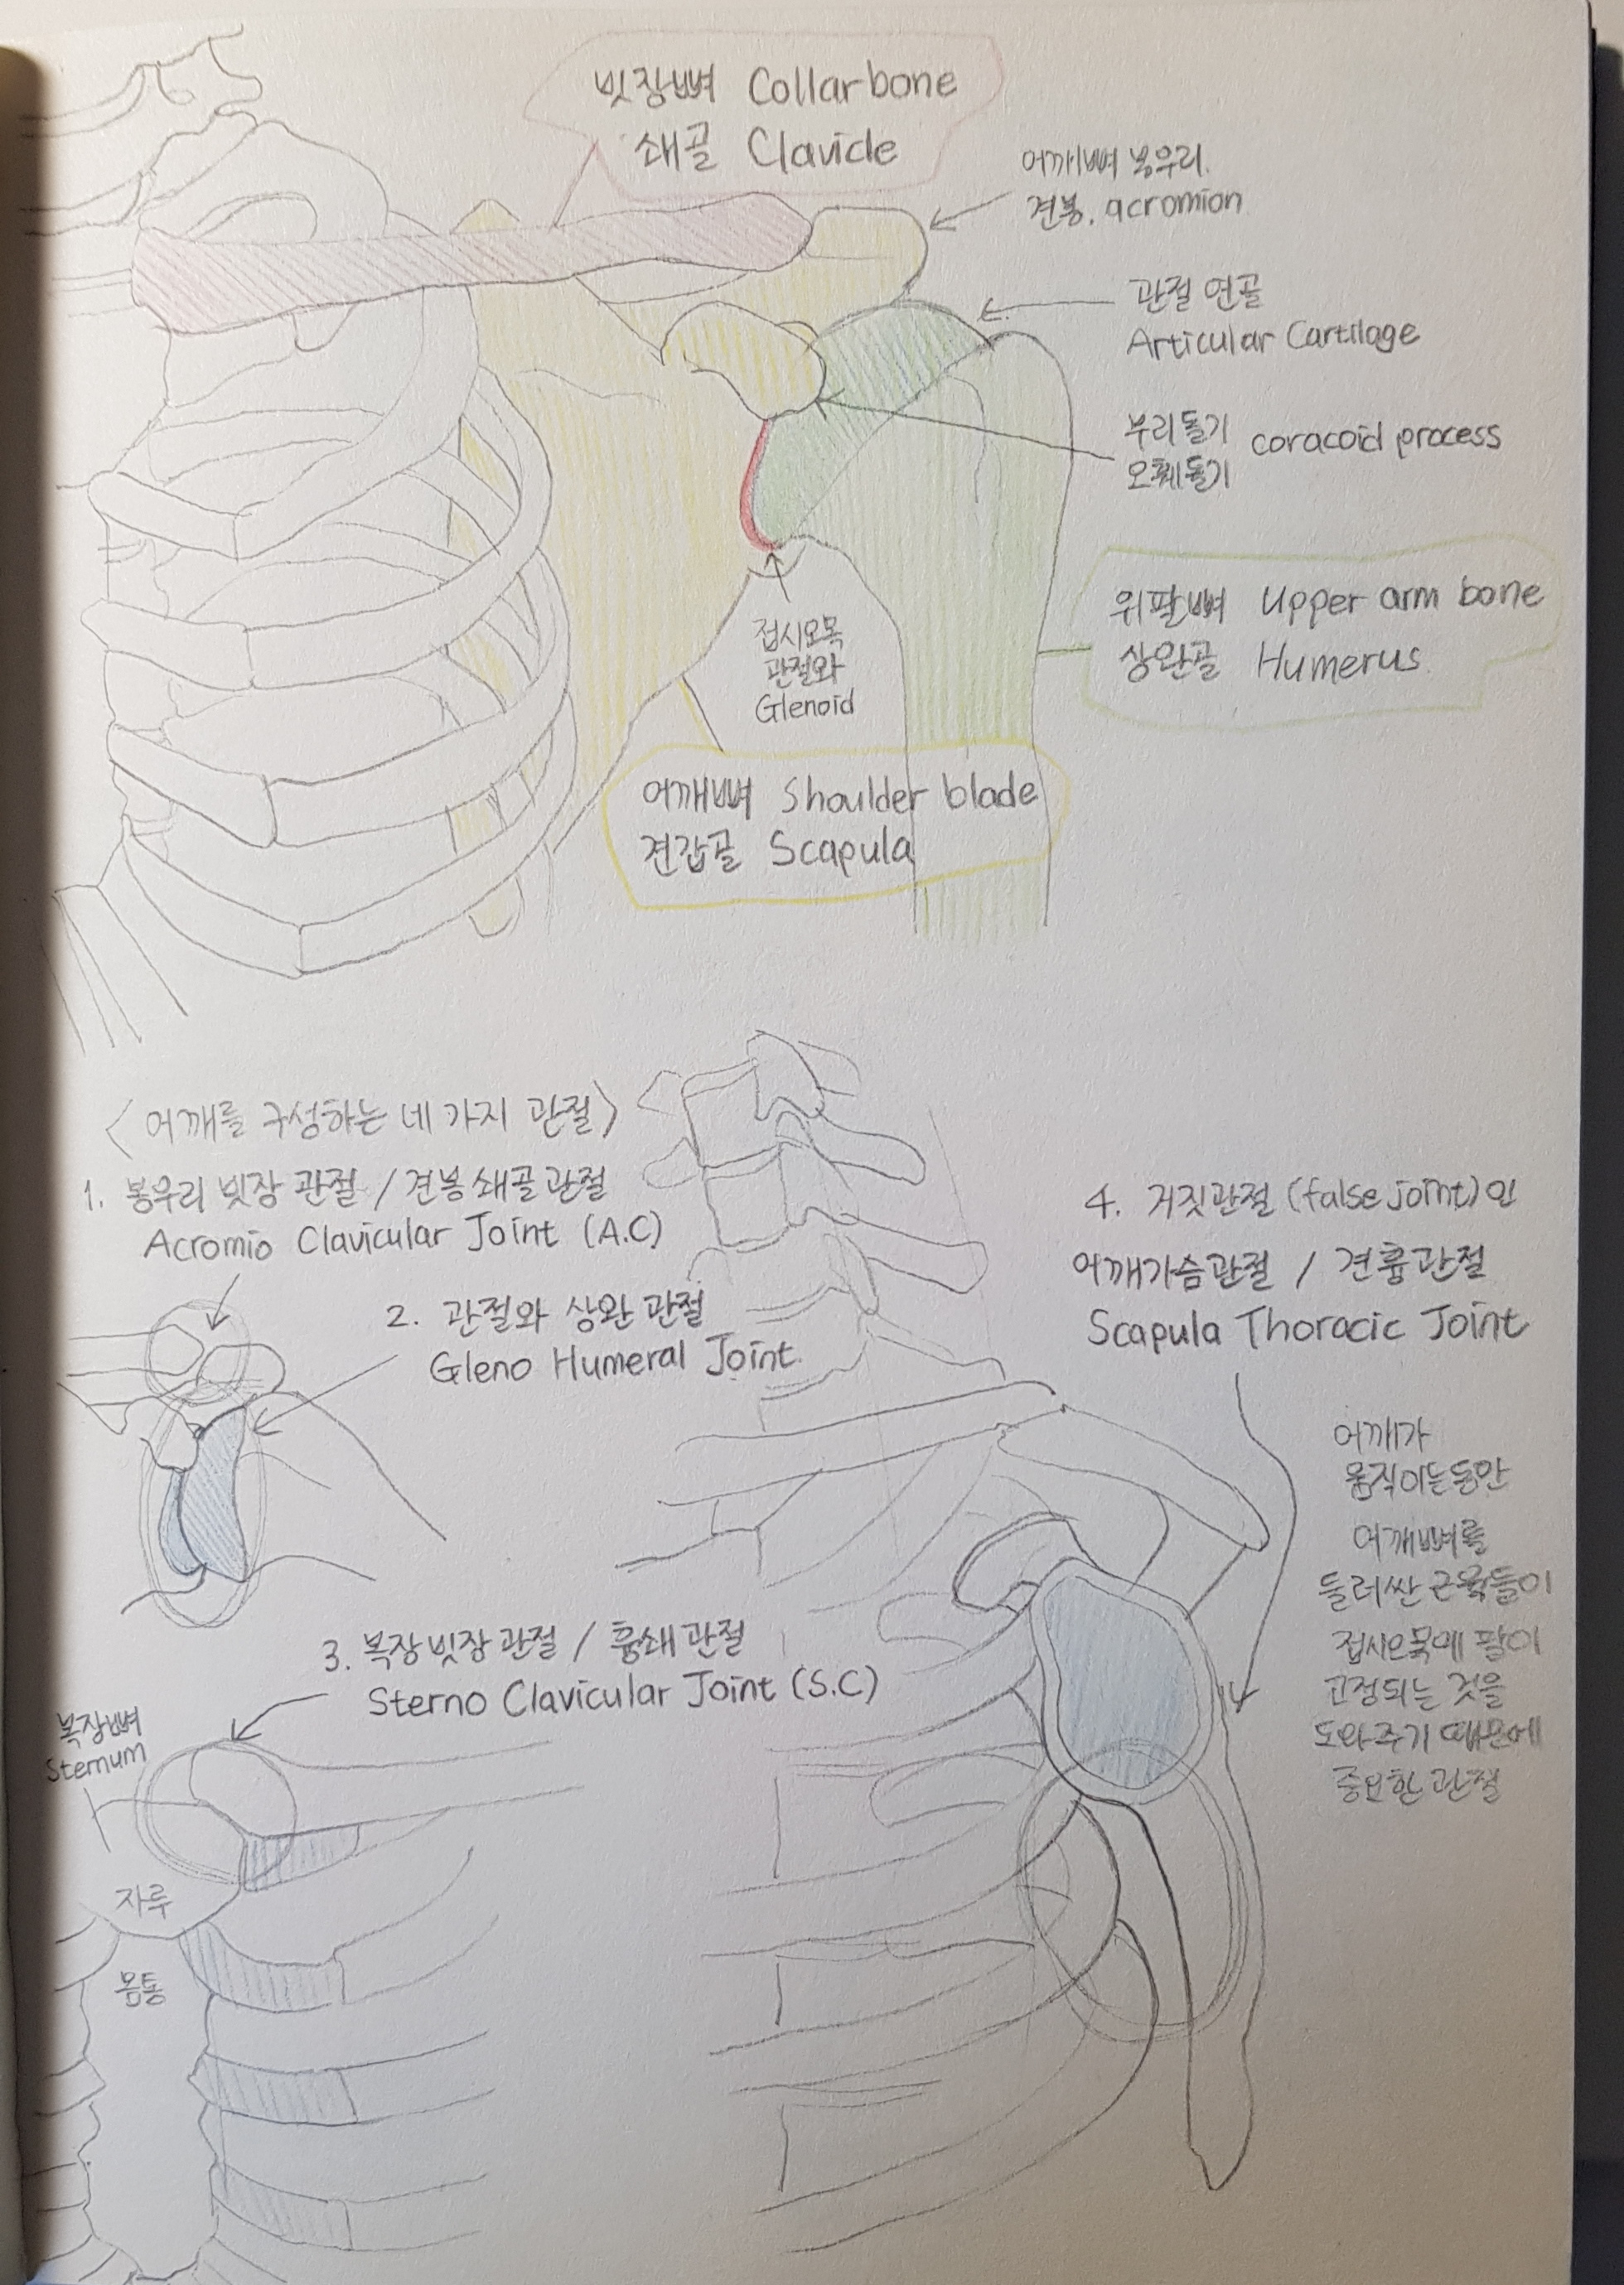 빗장뼈 Collarbone
쇄골 Clavicle
어깨뼈 봉우리.
견봉. acromion
관절 연골
Articular Cartilage
부리돌기
오훼돌기
coracoid process
위팔뼈 Upper arm bone
상완골 Humerus
접시오목
관절와
Glenoid
어깨뼈 Shoulder blade
견갑골 Scapula
<어깨를 구성하는 네 가지 관절>
1. 봉우리 빗장 관절 / 견봉 쇄골 관절
Acromio Clavicular Joint (A.C)
2. 관절와 상완 관절
Gleno Humeral Joint
3. 복장 빗장 관절 / 흉쇄 관절
Sterno Clavicular Joint (S.C)
복장뼈
Sternum
자루
몸통
4. 거짓관절 (false joint)인
어깨가슴관절 / 견흉관절
Scapula Thoracic Joint
어깨가
움직이는동안
어깨뼈를
둘러싼 근육들이
접시오목에 팔이
고정되는 것을
도와주기 때문에
중요한 관절